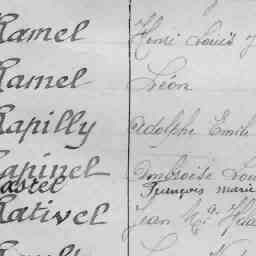 Ramel Henri Louis J
Ramel Léon
Rapilly Adolphe Emile
Rapinel Ambroise Lou
Rastel François marie
Rativel Jean